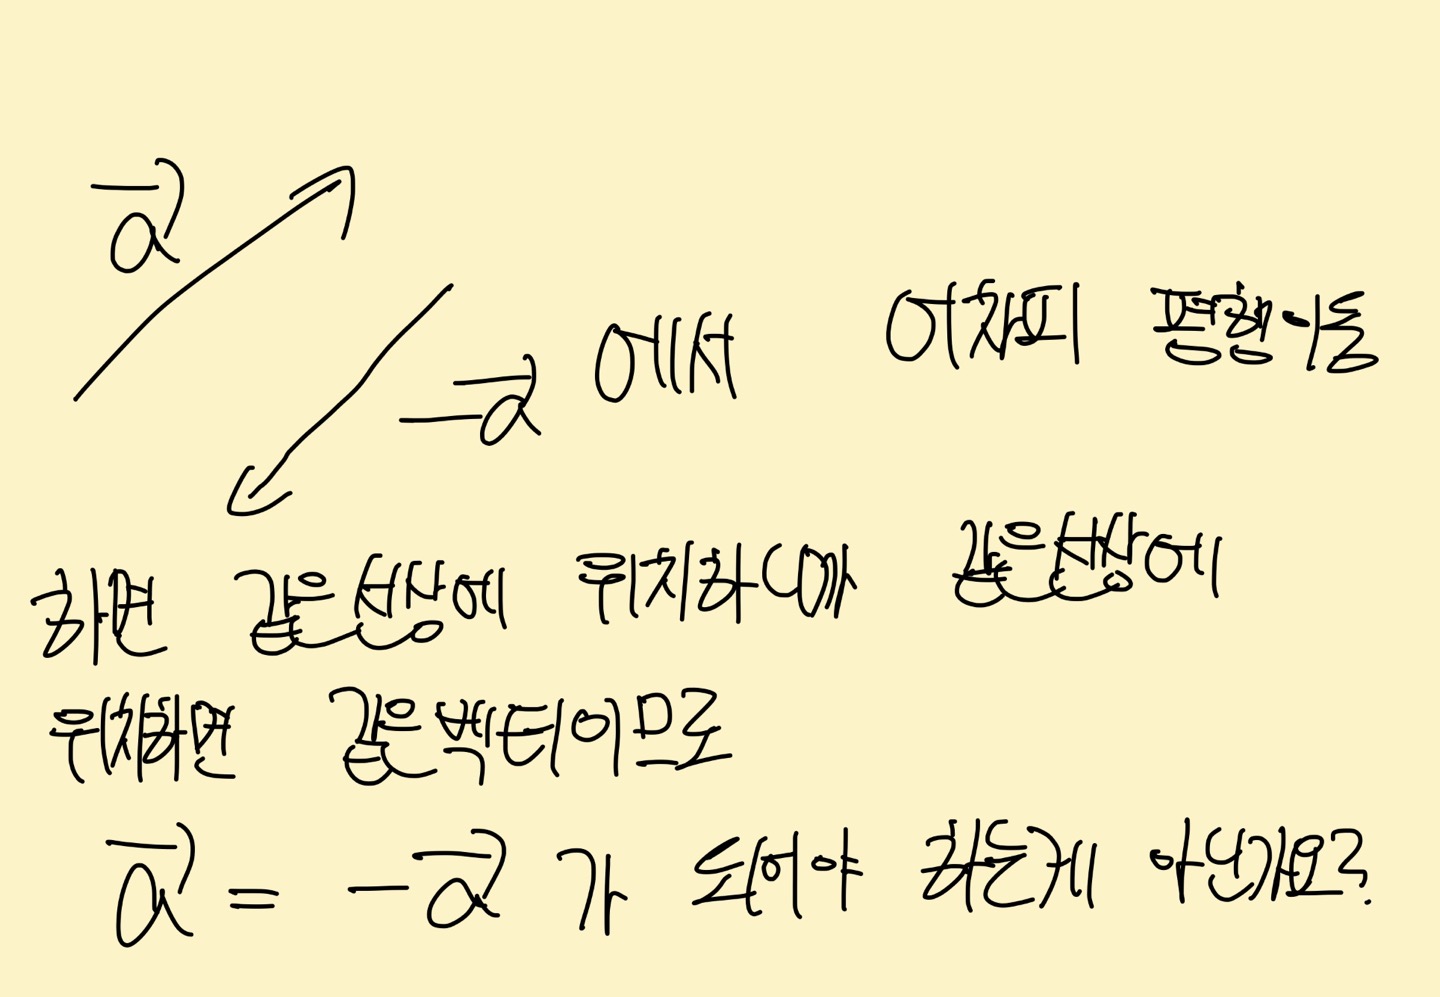 a⃗
-a⃗ 에서 어차피 평행이동
하면 같은선상에 위치하니까 같은선상에
위치하면 같은벡터이므로
a⃗ = -a⃗ 가 되어야 하는게 아닌가요?